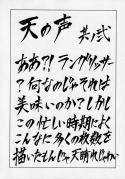 天の声 其ノ弐
ああ?!ラングリッサー
?何なのじゃそれは
美味いのか?しかし
この忙しい時期によく
こんなに多くの枚数を
描いたもんじゃ天晴れじゃ